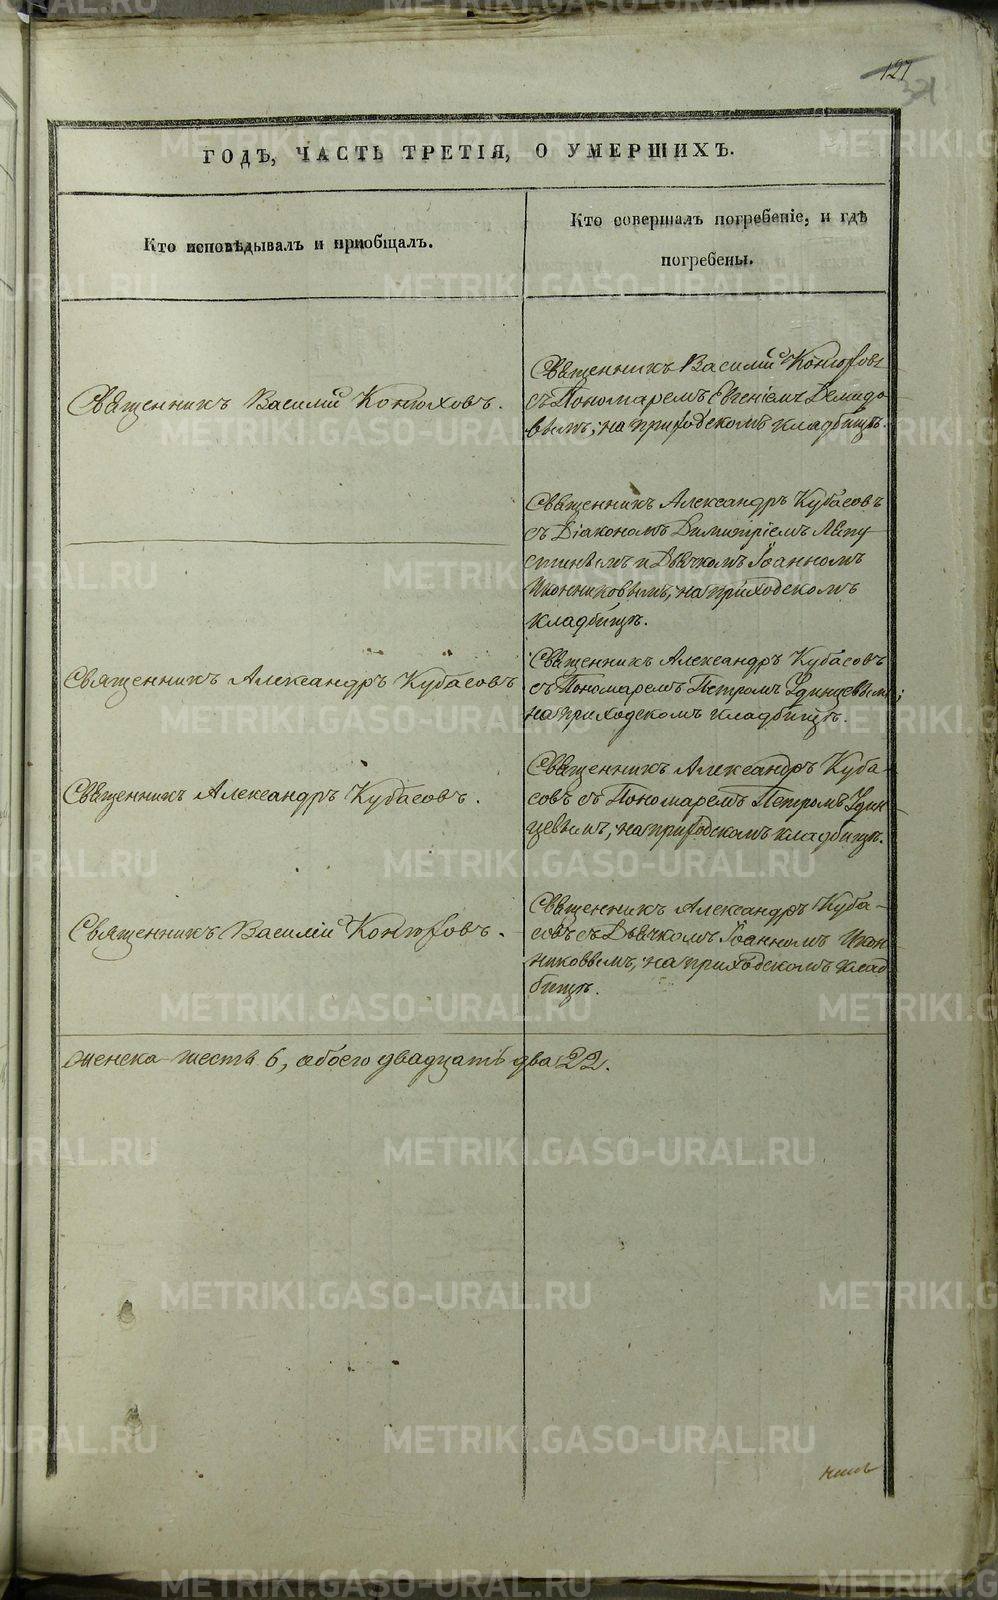 127
321
ГОДЪ, ЧАСТЬ ТРЕТІЯ, О УМЕРШИХЪ.
Кто исповѣдывалъ и пріобщалъ.
Кто совершалъ погребеніе, и гдѣ
погребены.
Священникъ Василій Конюховъ.
Священникъ Василій Конюховъ
съ Пономаремъ Евгеніемъ Демидо
вымъ, на приходскомъ кладбищѣ.
Священникъ Александръ Кубасовъ
съ Діакономъ Димитріемъ Лапу
стинымъ и Дьячкомъ Іоанномъ
Иконниковымъ, на приходскомъ
кладбищѣ.
Священникъ Александръ Кубасовъ
Священникъ Александръ Кубасовъ
съ Пономаремъ Петромъ Удинцевымъ;
на приходскомъ кладбищѣ.
Священникъ Александръ Кубасовъ.
Священникъ Александръ Куба-
совъ съ Пономаремъ Петромъ Удин-
цевымъ, на приходскомъ кладбищѣ.
Священникъ Василій Конюховъ.
Священникъ Александръ Куба-
совъ съ Дьячкомъ Іоанномъ Икон-
никовымъ, на приходскомъ клад
бищѣ.
женска шесть 6, обоего двадцать два 22.
METRIKI.GASO-URAL.RU